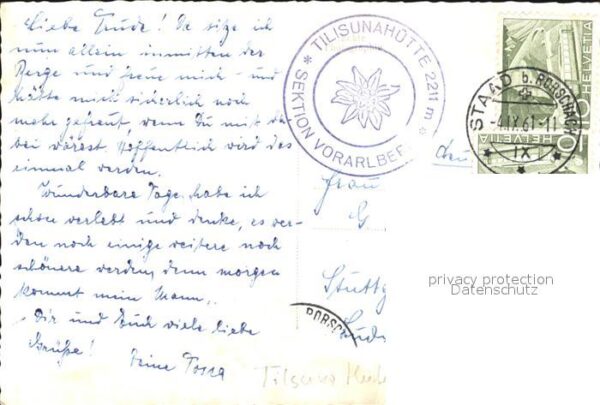 Liebe Trude! Da sitze ich
nun allein inmitten der
Berge und freue mich - und
hätte mich sicherlich noch
mehr gefreut, wenn Du mit da-
bei wärest. Hoffentlich wird das
einmal werden.
Wunderbare Tage habe ich
schon verlebt und denke, es wer-
den noch einige weitere noch
schönere werden, denn morgen
kommt mein Mann.
Dir und Euch viele liebe
Grüße! Deine
TILISUNAHÜTTE 2211 m
* SEKTION VORARLBER
HELVETIA
STAAD b. RORSCHACH
-4.IX.61-11
IX
HELVETIA
Frau
G
Stuttg
RORSC
privacy protection
Datenschutz